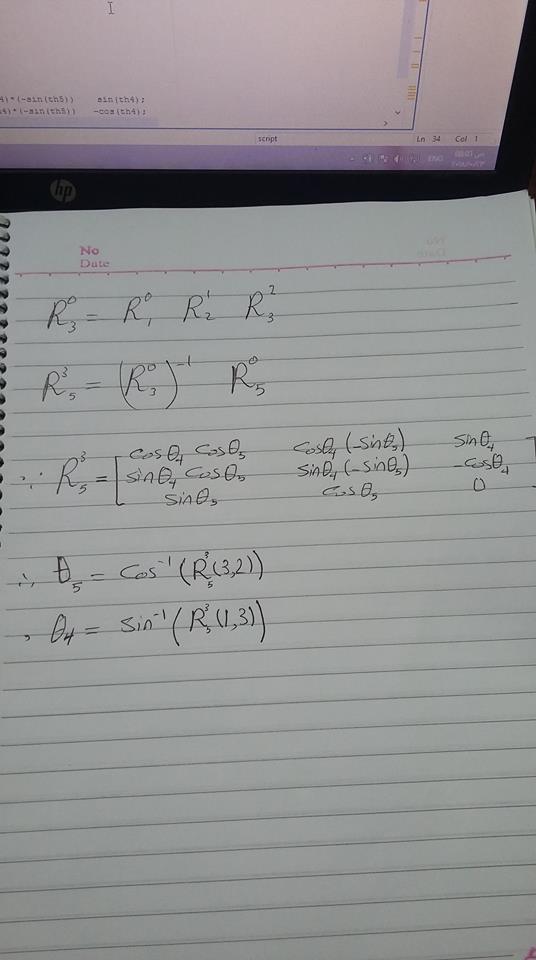 4)*(-sin(th5)) sin(th4);
4)*(-sin(th5)) -cos(th4);
script Ln 34 Col 1
ENG
hp
No
Date
R₃⁰ = R₁⁰ R₂¹ R₃²
R₅³ = (R₃⁰)⁻¹ R₅⁰
cosθ₄ cosθ₅ cosθ₄(-sinθ₅) sinθ₄
∵ R₅³ = [ sinθ₄ cosθ₅ sinθ₄(-sinθ₅) -cosθ₄ ]
sinθ₅ cosθ₅ 0
∴ θ₅ = cos⁻¹(R₅³(3,2))
, θ₄ = sin⁻¹(R₅³(1,3))